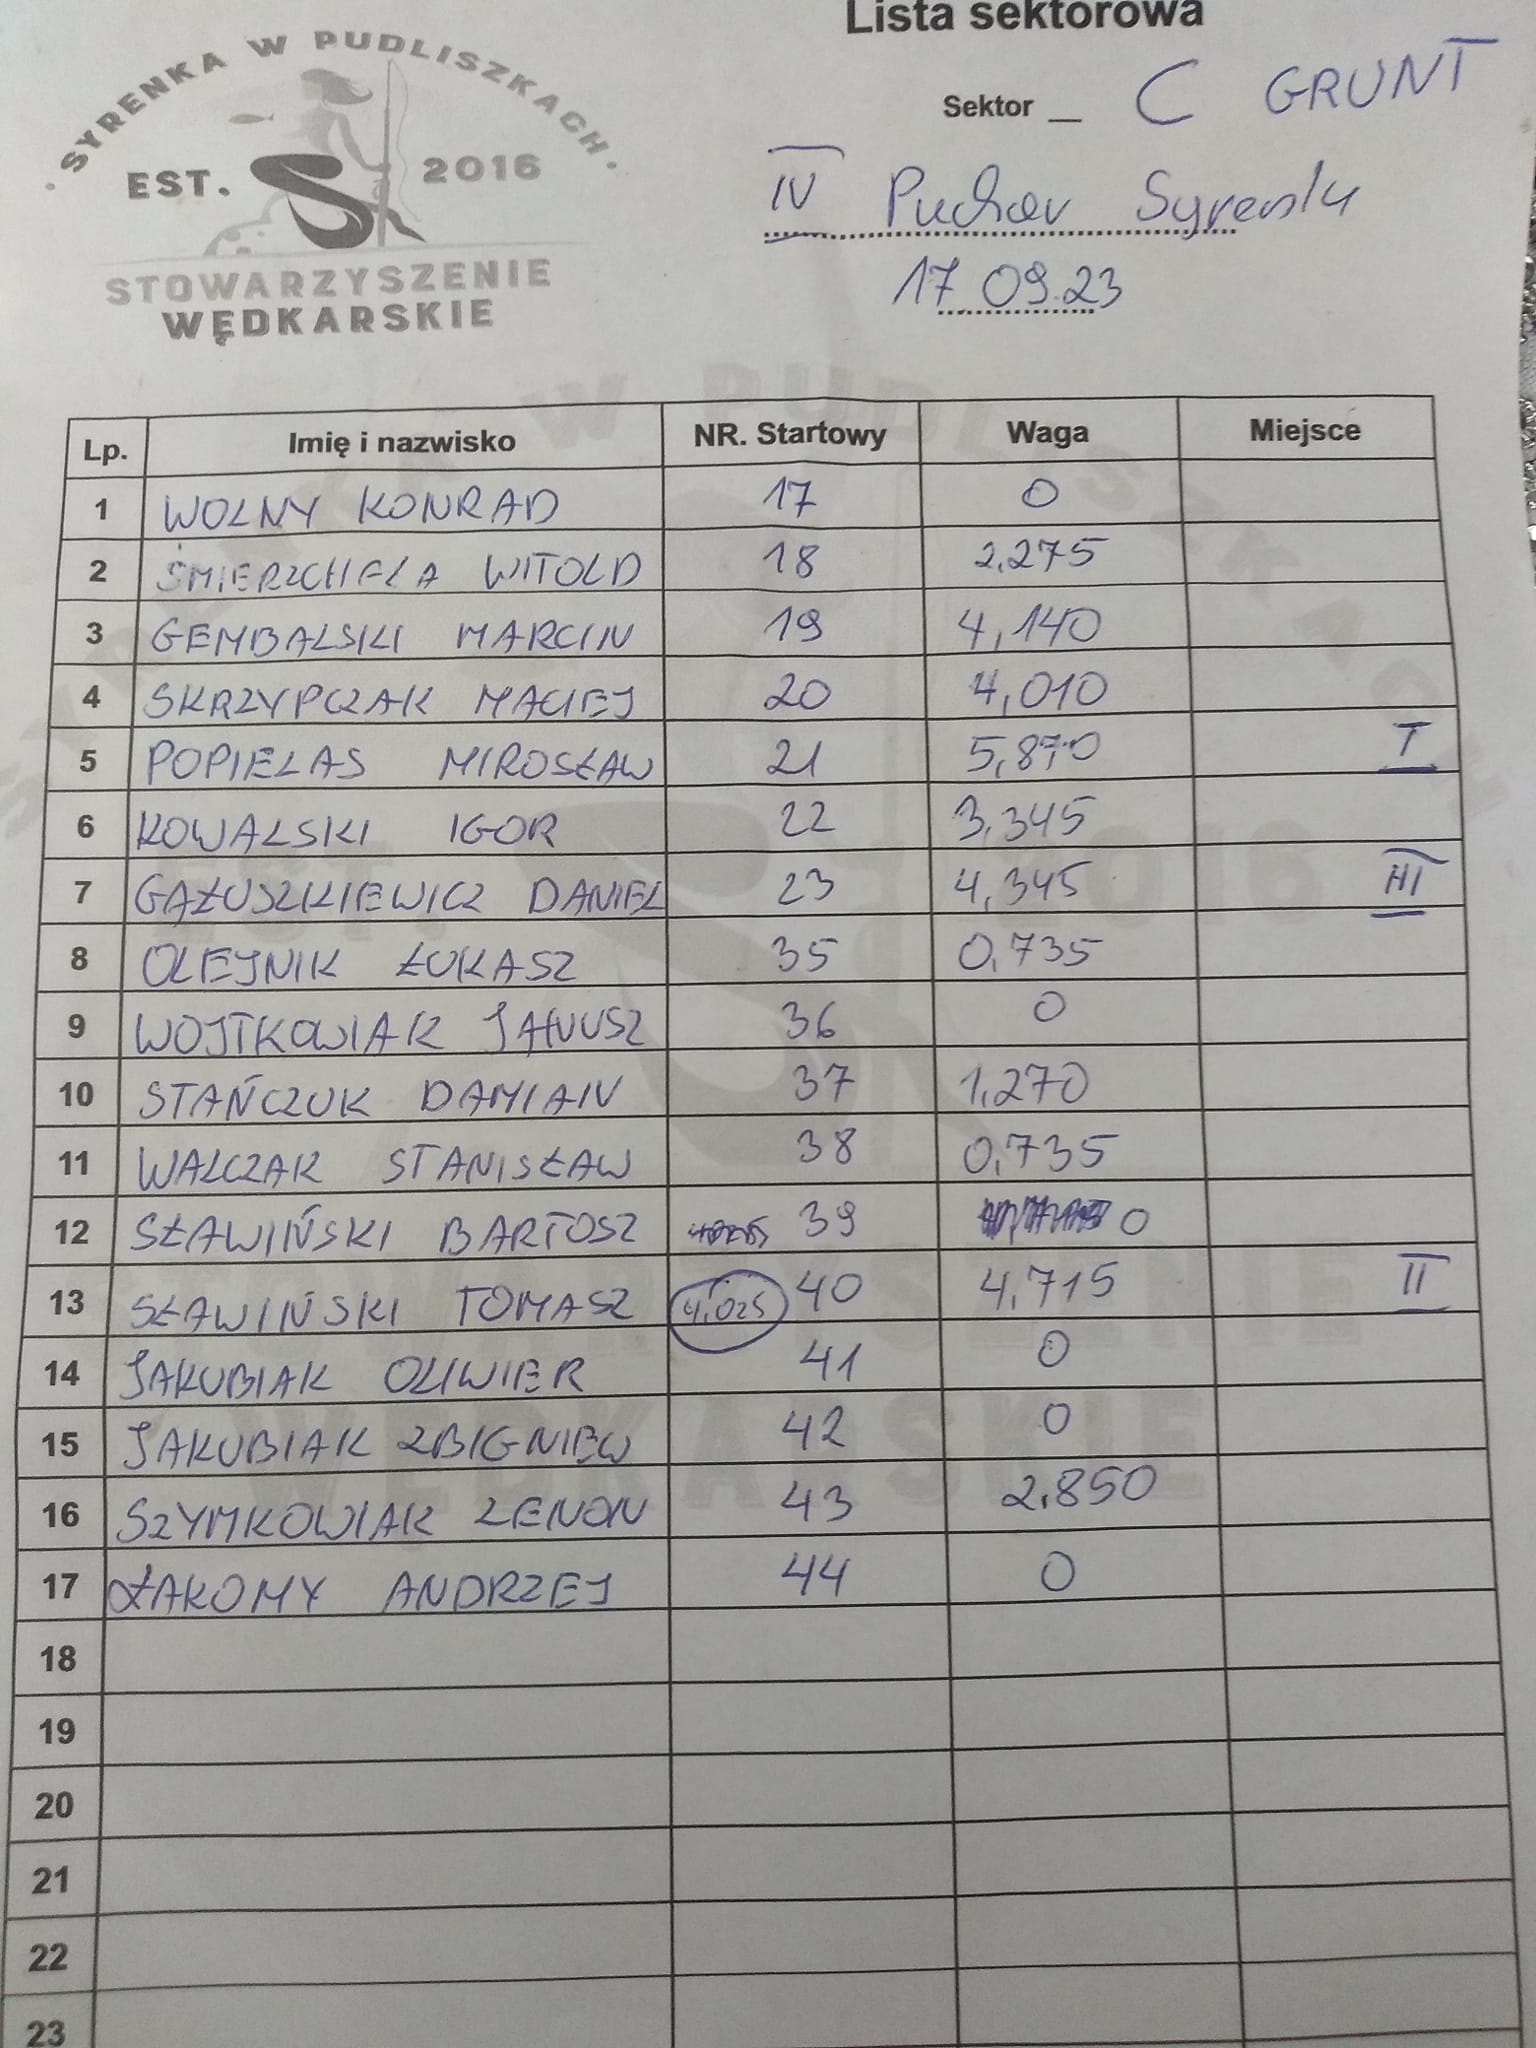 Lista sektorowa
SYRENKA W PUDLISZKACH
EST. 2016
STOWARZYSZENIE
WĘDKARSKIE
Sektor _ C GRUNT
IV Puchar Syrenki
17.09.23
Lp. Imię i nazwisko NR. Startowy Waga Miejsce
1 WOLNY KONRAD 17 0
2 ŚMIERZCHEŁA WITOLD 18 2,275
3 GEMBALSKI MARCIN 19 4,140
4 SKRZYPCZAK MACIEJ 20 4,010
5 POPIELAS MIROSŁAW 21 5,870 I
6 KOWALSKI IGOR 22 3,345
7 GAŁUSZKIEWICZ DANIEL 23 4,345 III
8 OLEJNIK ŁUKASZ 35 0,735
9 WOJTKOWIAK JANUSZ 36 0
10 STAŃCZUK DAMIAN 37 1,270
11 WALCZAK STANISŁAW 38 0,735
12 SŁAWIŃSKI BARTOSZ 39 0
13 SŁAWIŃSKI TOMASZ 4,025 40 4,715 II
14 JAKUBIAK OLIWIER 41 0
15 JAKUBIAK ZBIGNIEW 42 0
16 SZYMKOWIAK ZENON 43 2,850
17 ŁAKOMY ANDRZEJ 44 0
18
19
20
21
22
23